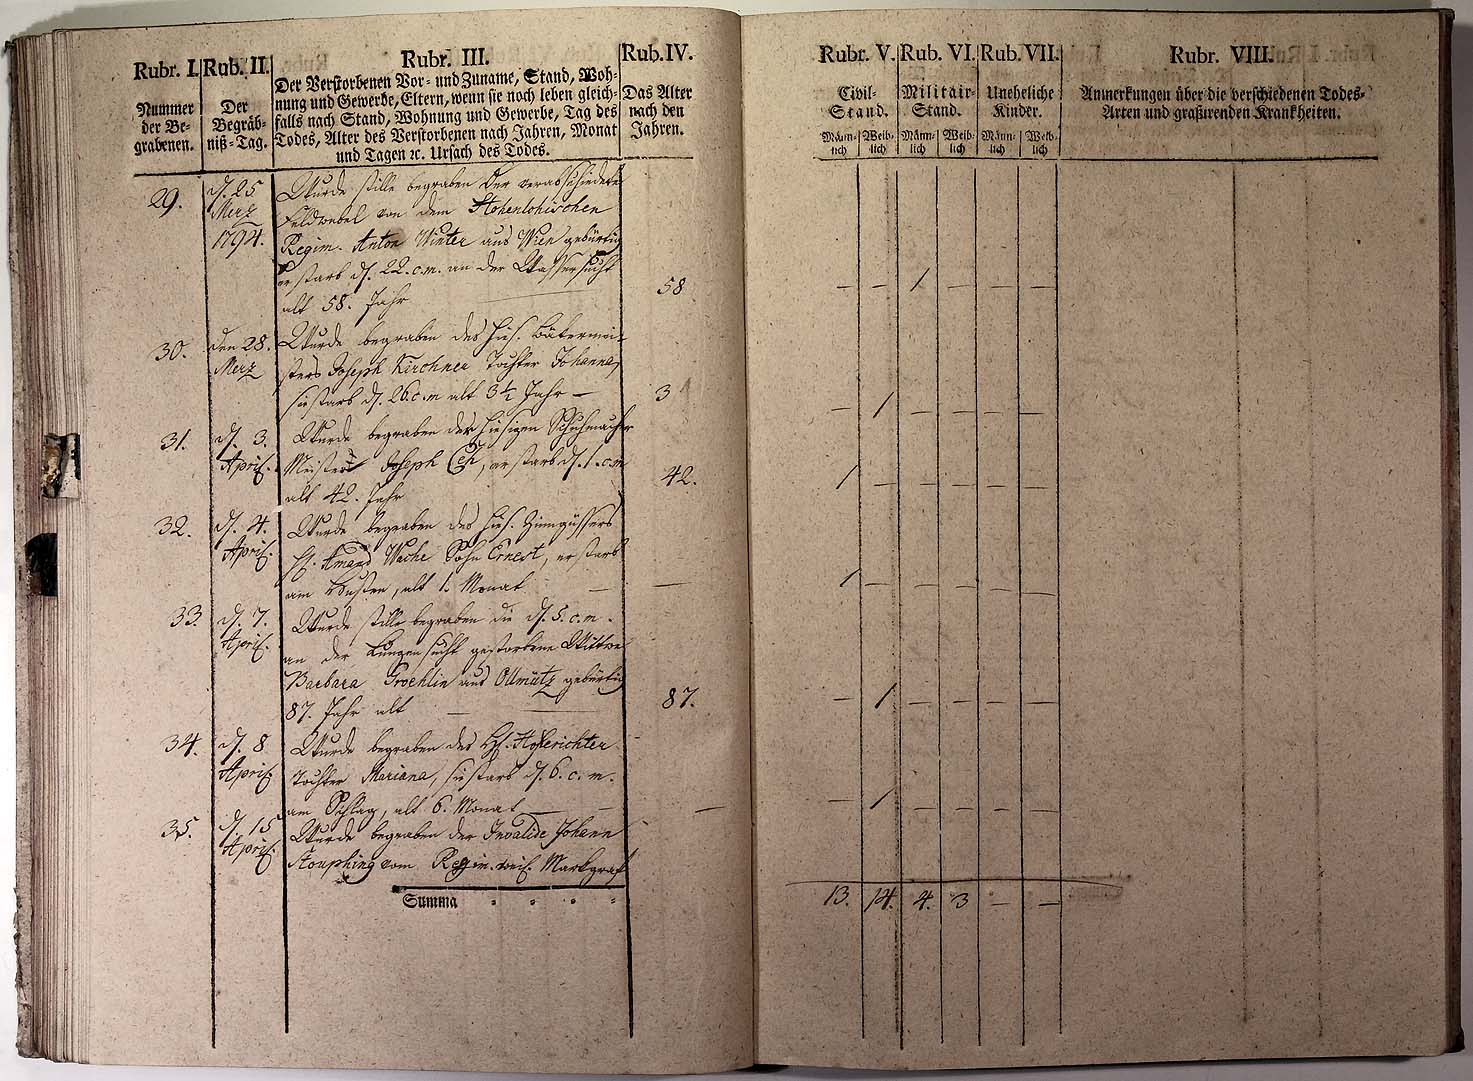 Rubr. I.
Nummer
der Be-
grabenen.
Rub. II.
Der
Begräb-
niß-Tag.
Rubr. III.
Der Verstorbenen Vor- und Zuname, Stand, Woh-
nung und Gewerbe, Eltern, wenn sie noch leben gleich-
falls nach Stand, Wohnung und Gewerbe, Tag des
Todes, Alter des Verstorbenen nach Jahren, Monat
und Tagen ꝛc. Ursach des Todes.
Rub. IV.
Das Alter
nach den
Jahren.
Rubr. V.
Civil-
Stand.
Männ-
lich
Weib-
lich
Rub. VI.
Militair-
Stand.
Männ-
lich
Weib-
lich
Rub. VII.
Uneheliche
Kinder.
Männ-
lich
Weib-
lich
Rubr. VIII.
Anmerkungen über die verschiedenen Todes-
Arten und grassirenden Krankheiten.
29.
d. 25
Merz
1794.
Wurde stille begraben der verabschiedete
Feldwebel von dem Hohenlohischen
Regim. Anton Winter aus Wien gebürtig
er starb d. 22. c. m. an der Wassersucht
alt 58. Jahr
58
– – / – – –
30.
den 28.
Merz
Wurde begraben des hies. Bäkermei-
sters Joseph Kirchner Tochter Johanna,
sie starb d. 26. c. m alt 3½ Jahr –
3
– / – – – –
31.
d. 3.
April.
Wurde begraben der hiesigen Schuhmacher
Meister Joseph er starb d. 1. c. m
alt 42. Jahr
42.
/ – – – – –
32.
d. 4.
April.
Wurde begraben des hies. Zinngüssers
H. Amand Wache Sohn Ernest, er starb
am Husten, alt 1. Monat –
—
/ – – – – –
33.
d. 7.
April.
Wurde stille begraben die d. 5. c. m.
an der Lungensucht gestorbene Wittwe
Barbara Groehlin aus Ollmütz gebürtig
87. Jahr alt — —
87.
– / – – – –
34.
d. 8
April.
Wurde begraben des H. Hoferichter
Tochter Mariana, sie starb d. 6. c. m.
am Schlag, alt 6. Monat — –
—
– / – – – –
35.
d. 15
April.
Wurde begraben der Invalide Johann
vom Regim. Markgraf
Summa
13. 14. 4. 3 – –